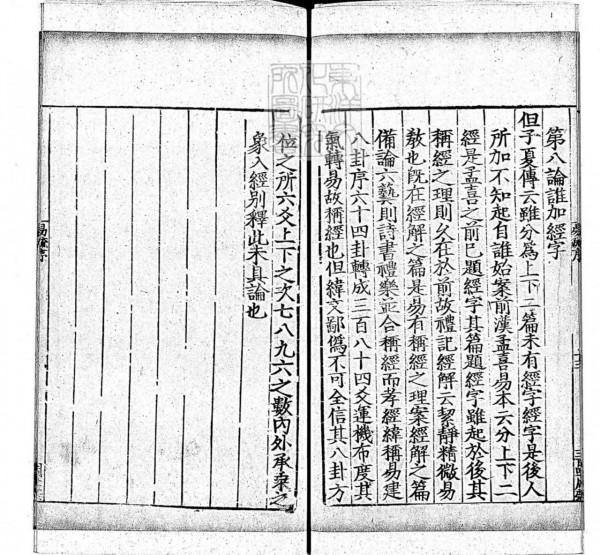 第八論誰加經字
但子夏傳云雖分為上下二篇未有經字經字是後人
所加不知起自誰始案前漢孟喜易本云分上下二
經是孟喜之前已題經字其篇題經字雖起於後其
稱經之理則久在於前故禮記經解云絜靜精微易
教也既在經解之篇是易有稱經之理案經解之篇
備論六藝則詩書禮樂並合稱經而孝經緯稱易建
八卦序六十四卦轉成三百八十四爻運機布度其
氣轉易故稱經也但緯文鄙偽不可全信其八卦方
位之所六爻上下之次七八九六之數內外承乘之
象入經別釋此未具論也